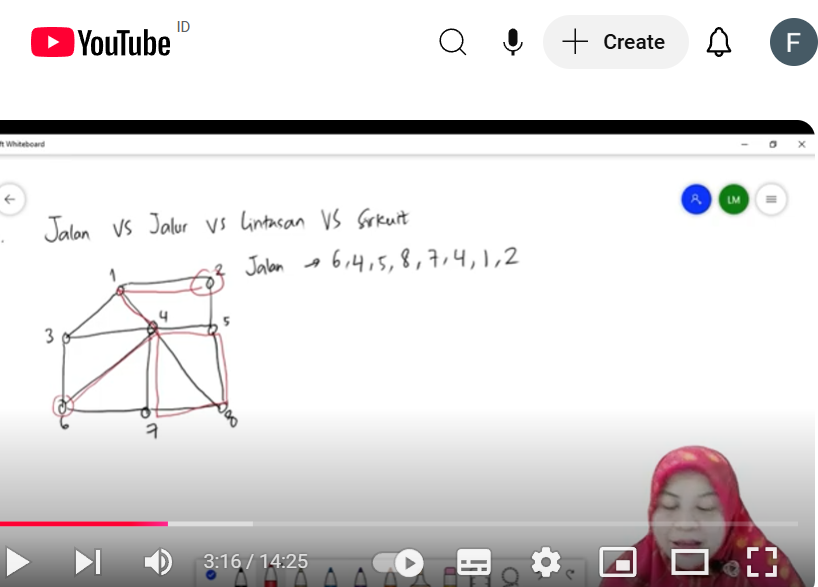 YouTube ID
Create
F
ft Whiteboard
LM
Jalan VS Jalur vs Lintasan VS Sirkuit
Jalan → 6,4,5,8,7,4,1,2
1
2
4
5
3
6
7
8
3:16 / 14:25